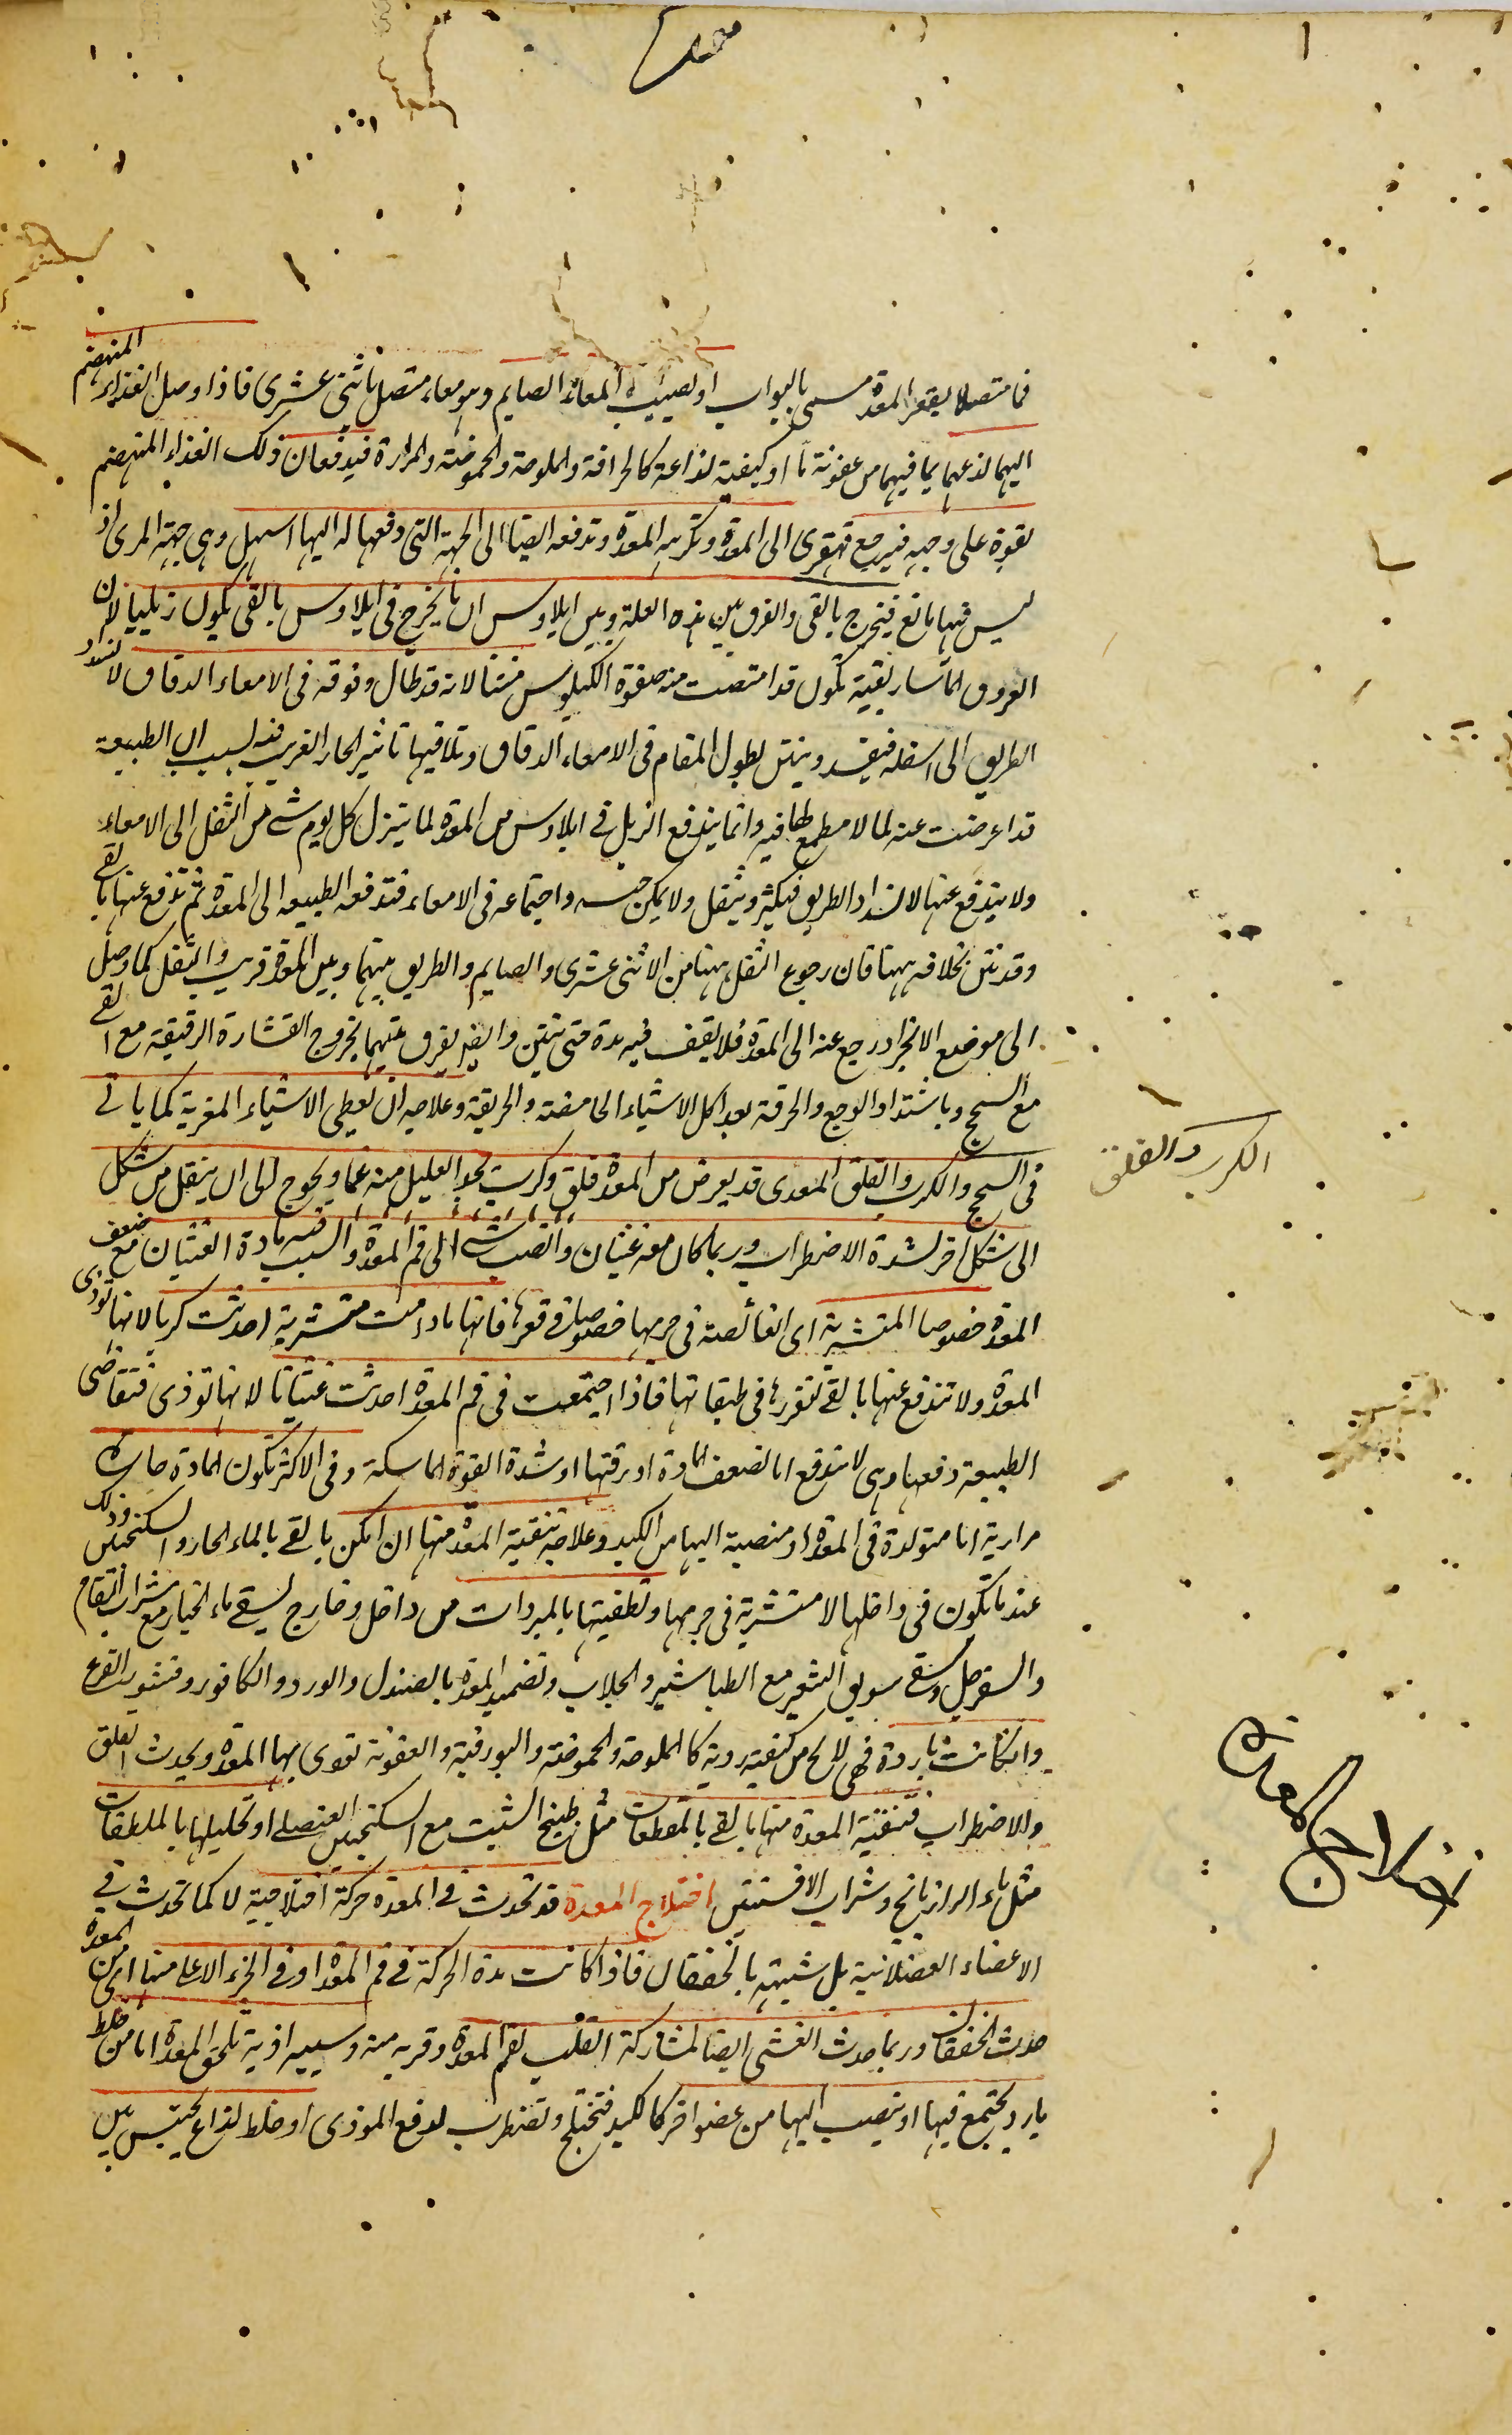 فما متصلا بقعر المعدة مسمى بالبواب او يصيب المعاء الصايم وهو معاء متصل باثنى عشرى فاذا وصل الغذاء المنهضم
اليهما لذعهما بما فيهما من عفونة ما او كيفية لذاعة كالحرافة والملوحة والحموضة والمرارة فيدفعان ذلك الغذاء المنهضم
بقوة على وجهه فيرجع قهقرى الى المعدة وتكرهه المعدة وتدفعه ايضا الى الجهة التى دفعها له اليها اسهل وهى جهة المرى اذ
ليس فيها مانع فيخرج بالقى والفرق بين هذه العلة وبين ايلاوس ان ما يخرج فى ايلاوس بالقى يكون زبليا لان
العروق الماساريقية تكون قد امتصت منه صفوة الكيلوس منتنا لانه قد طال وقوفه فى الامعاء الدقاق لانسداد
الطريق الى اسفله فيفسد وينتن لطول المقام فى الامعاء الدقاق وتلاقيها تاثير الحار الغريب فيه بسبب ان الطبيعة
قد اعرضت عنه لما لا مطمع لها فيه وانما يندفع الزبل فى ايلاوس من المعدة لما ينزل كل يوم شئ من الثفل الى الامعاء
ولا يندفع عنها لانسداد الطريق فيكثر ويثقل ولا يمكن حبسه واجتماعه فى الامعاء فتدفعه الطبيعه الى المعدة ثم تدفع عنها بالقى
وقد نتن بخلافه ههنا فان رجوع الثفل ههنا من الاثنى عشرى والصايم والطريق بينهما وبين المعدة قريب والثفل كما وصل
الى موضع الانجراد رجع عنه الى المعدة فلا يقف فيه مدة حتى ينتن وايضا يفرق بينهما بخروج القشارة الرقيقة مع القى
مع السحج وباشتداد الوجع والحرقة بعد اكل الاشياء الحامضة والحريفة وعلاجه ان يعطى الاشياء المغرية كما ياتى
فى السحج والكرب والقلق المعدى قد يعرض من المعدة قلق وكرب يجد العليل منه غما ويحوج الى ان ينتقل من شكل
الى شكل اخر لشدة الاضطراب وربما كان معه غثيان وانصب شئ الى فم المعدة والسبب فيه مادة الغثيان مع ضعف
المعدة خصوصا المتشربة اى الغائصة فى جرمها خصوصا فى قعرها فانها ما دامت متشربة احدثت كربا لانها توذى
المعدة ولا تندفع عنها بالقى لتغررها فى طبقاتها فاذا اجتمعت فى فم المعدة احدثت غثيانا لانها توذى فتتقاضى
الطبيعة دفعها وهى لا تندفع اما لضعف المادة او رقتها او شدة القوة الماسكة وفى الاكثر تكون المادة حارة
مرارية اما متولدة فى المعدة او منصبة اليها من الكبد وعلاجه تنقية المعدة منها ان امكن بالقى بالماء الحار والسكنجبين وذلك
عند ما تكون فى داخلها لا متشربة فى جرمها وتطفيتها بالمبردات من داخل وخارج يسقى ماء الخيار مع شراب التفاح
والسفرجل وسقى سويق الشعير مع الطباشير والجلاب وتضميد المعدة بالصندل والورد والكافور وقشور القرع
وان كانت باردة فهى لا تخلو من كيفية ردية كالملوحة والحموضة والبورقية والعفونة توذى بها المعدة ويحدث القلق
والاضطراب فتنقية المعدة منها بالقى بالمقطعات مثل طبيخ الشبت مع السكنجبين العنصلى او تحليلها بالملطفات
مثل ماء الرازيانج وشراب الافسنتين اختلاج المعدة قد تحدث فى المعدة حركة اختلاجية لا كما تحدث فى
الاعضاء العضلانية بل شبيهة بالخفقان فاذا كانت هذه الحركة فى فم المعدة او فى الجزء الاعلى منها اى من المعدة
حدث الخفقان وربما حدث الغشى ايضا لمشاركة القلب لفم المعدة وقربه منه وسببه اذية تلحق المعدة اما من خلط
بارد يجتمع فيها او ينصب اليها من عضو اخر كالكبد فتختلج وتضطرب لدفع الموذى او خلط لذاع يحتبس بين
الكرب والقلق
اختلاج المعدة